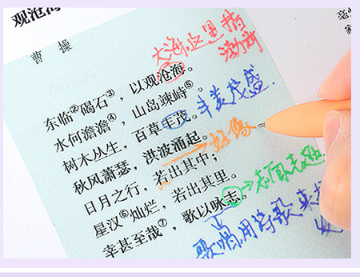 观沧海
曹操
大海,这里指渤海
东临②碣石③,以观沧海。
水何澹澹④,山岛竦峙⑤。
树木丛生,百草丰茂。
丰美茂盛
秋风萧瑟,洪波涌起。
好像
日月之行,若出其中;
星汉⑥灿烂,若出其里。
幸甚至哉⑦,歌以咏志。
歌唱,用诗歌